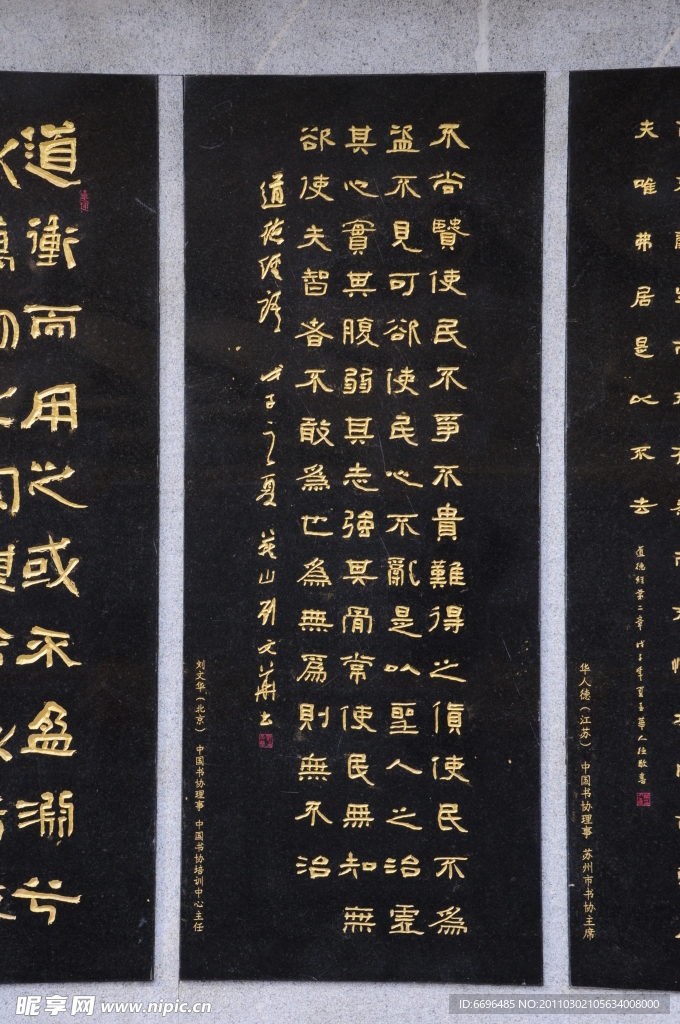 夫唯弗居是以不去
道德經第二章戊子年夏至華人德敬書
华人德（江苏） 中国书协理事 苏州市书协主席
不尚賢使民不爭不貴難得之貨使民不為
盜不見可欲使民心不亂是以聖人之治虛
其心實其腹弱其志強其骨常使民無知無
欲使夫智者不敢為也為無為則無不治
道德經語 戊子之夏 燕山劉文華書
刘文华（北京） 中国书协理事 中国书协培训中心主任
道衝而用之或不盈淵兮
昵享网 www.nipic.cn
ID:6696485 NO:20110302105634008000